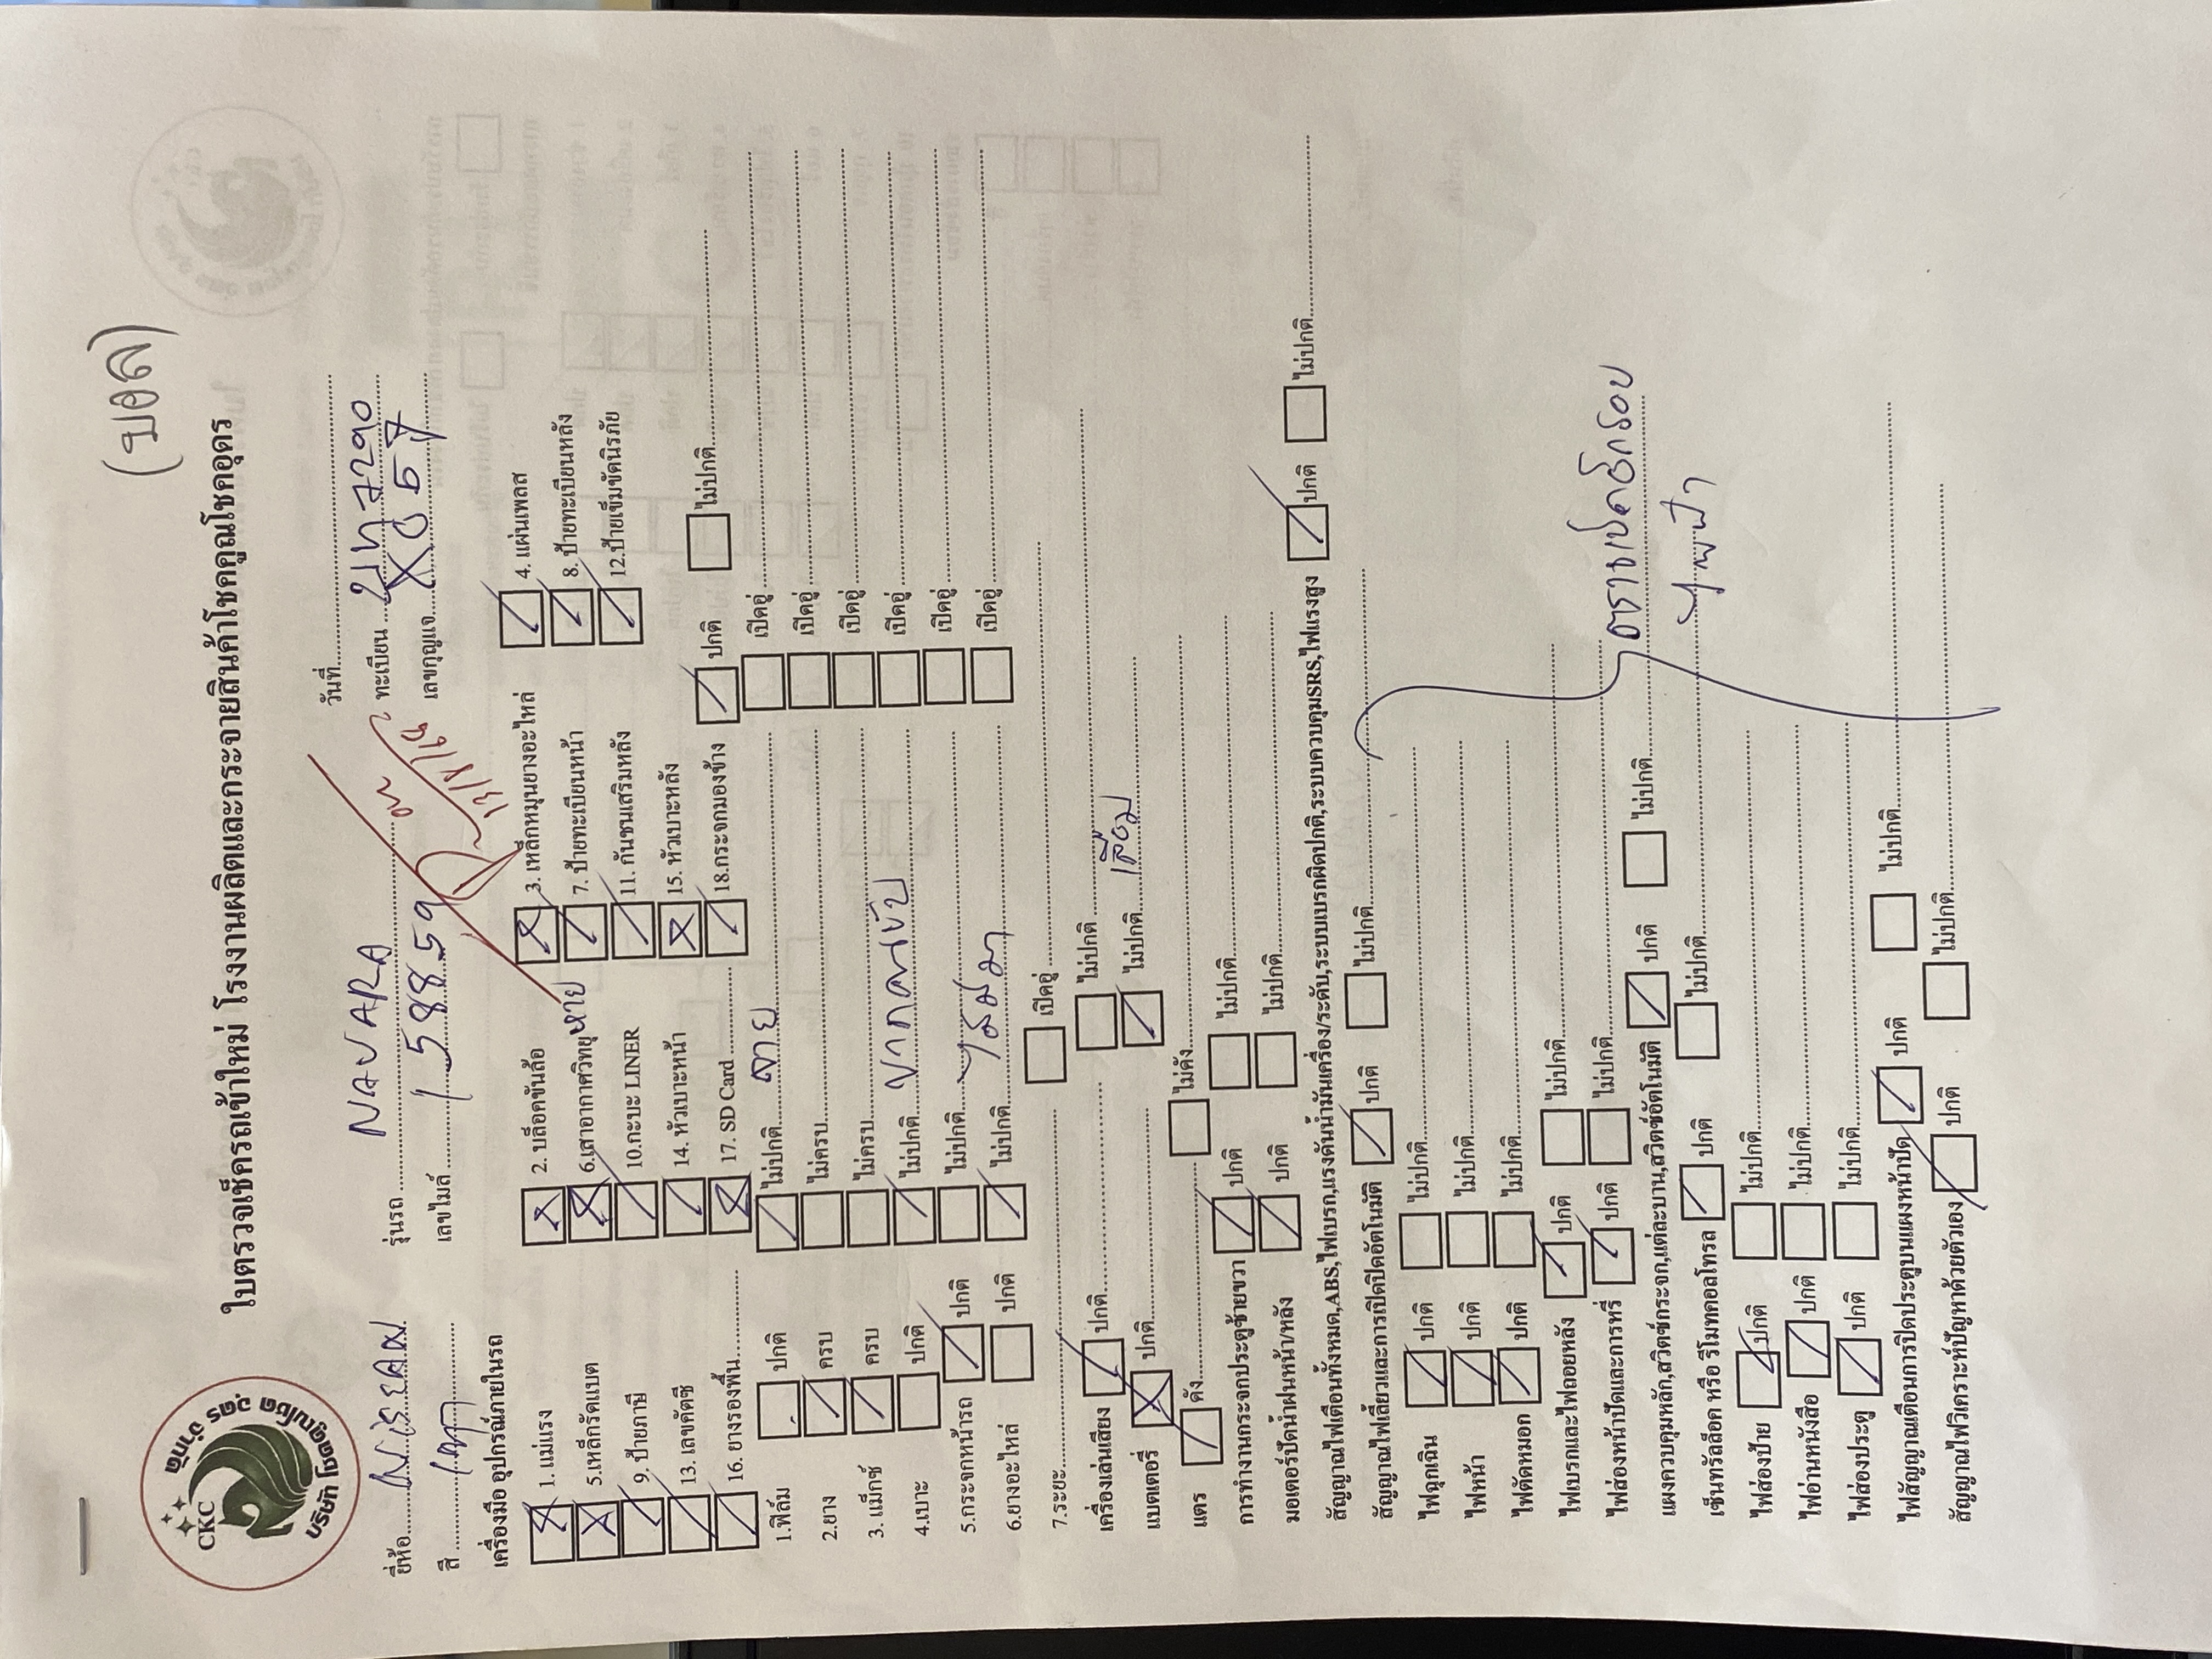 (บอล)
CKC
บริษัท โชคคูณโชค อุดร จำกัด
ใบตรวจเช็ครถเข้าใหม่ โรงงานผลิตและกระจายสินค้าโชคคูณโชคอุดร
วันที่
ยี่ห้อ NISSAN รุ่นรถ NAVARA ทะเบียน
สี เทา เลขไมล์ 158859 เลขกุญแจ
เครื่องมือ อุปกรณ์ภายในรถ
1. แม่แรง 2. บล็อคขันล้อ 3. เหล็กหมุนยางอะไหล่ 4. แผ่นเพลส
5.เหล็กรัดแบต 6.เสาอากาศวิทยุ หาย 7. ป้ายทะเบียนหน้า 8. ป้ายทะเบียนหลัง
9. ป้ายภาษี 10.กะบะ LINER 11. กันชนเสริมหลัง 12.ป้ายเข็มขัดนิรภัย
13.เลขคัตซี 14. หัวเบาะหน้า 15. หัวเบาะหลัง
16. ยางรองพื้น 17. SD Card 18.กระจกมองข้าง ปกติ ไม่ปกติ
1.ฟิล์ม ปกติ ไม่ปกติ ลาย เปิดอู่
2.ยาง ครบ ไม่ครบ เปิดอู่
3. แม็กซ์ ครบ ไม่ครบ เปิดอู่
4.เบาะ ปกติ ไม่ปกติ เปิดอู่
5.กระจกหน้ารถ ปกติ ไม่ปกติ เปิดอู่
6.ยางอะไหล่ ปกติ ไม่ปกติ เปิดอู่
7.ระยะ เปิดอู่
เครื่องเล่นเสียง ปกติ ไม่ปกติ
แบตเตอรี่ ปกติ ไม่ปกติ เสื่อม
แตร ดัง ไม่ดัง
การทำงานกระจกประตูซ้ายขวา ปกติ ไม่ปกติ
มอเตอร์ปัดน้ำฝนหน้า/หลัง ปกติ ไม่ปกติ
สัญญาณไฟเตือนทั้งหมด,ABS,ไฟเบรก,แรงดันน้ำมันเครื่อง/ระดับ,ระบบเบรกผิดปกติ,ระบบควบคุมSRS,ไฟแรงสูง ปกติ ไม่ปกติ
สัญญาณไฟเลี้ยวและการเปิดปิดอัตโนมัติ ปกติ ไม่ปกติ
ไฟฉุกเฉิน ปกติ ไม่ปกติ
ไฟหน้า ปกติ ไม่ปกติ
ไฟตัดหมอก ปกติ ไม่ปกติ
ไฟเบรกและไฟถอยหลัง ปกติ ไม่ปกติ
ไฟส่องหน้าปัดและการหรี่ ปกติ ไม่ปกติ
แผงควบคุมหลัก,สวิตซ์กระจก,แต่ละบาน,สวิตซ์อัตโนมัติ ปกติ ไม่ปกติ
เซ็นทรัลล็อค หรือ รีโมทคอลโทรล ปกติ ไม่ปกติ
ไฟส่องป้าย ปกติ ไม่ปกติ
ไฟอ่านหนังสือ ปกติ ไม่ปกติ
ไฟส่องประตู ปกติ ไม่ปกติ
ไฟสัญญาณเตือนการปิดประตูบนแผงหน้าปัด ปกติ ไม่ปกติ
สัญญาณไฟวิเคราะห์ปัญหาด้วยตัวเอง ปกติ ไม่ปกติ